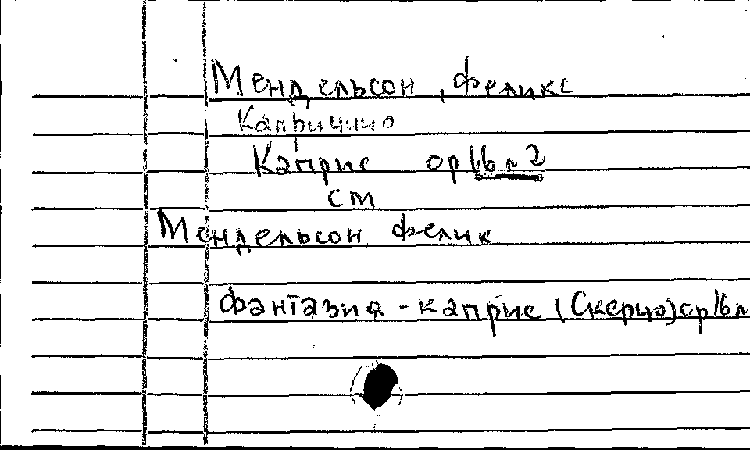 Мендельсон, Феликс
Каприччио
Каприс op 16 n 2
см
Мендельсон Феликс
Фантазия - каприс (Скерцо) op 16 n